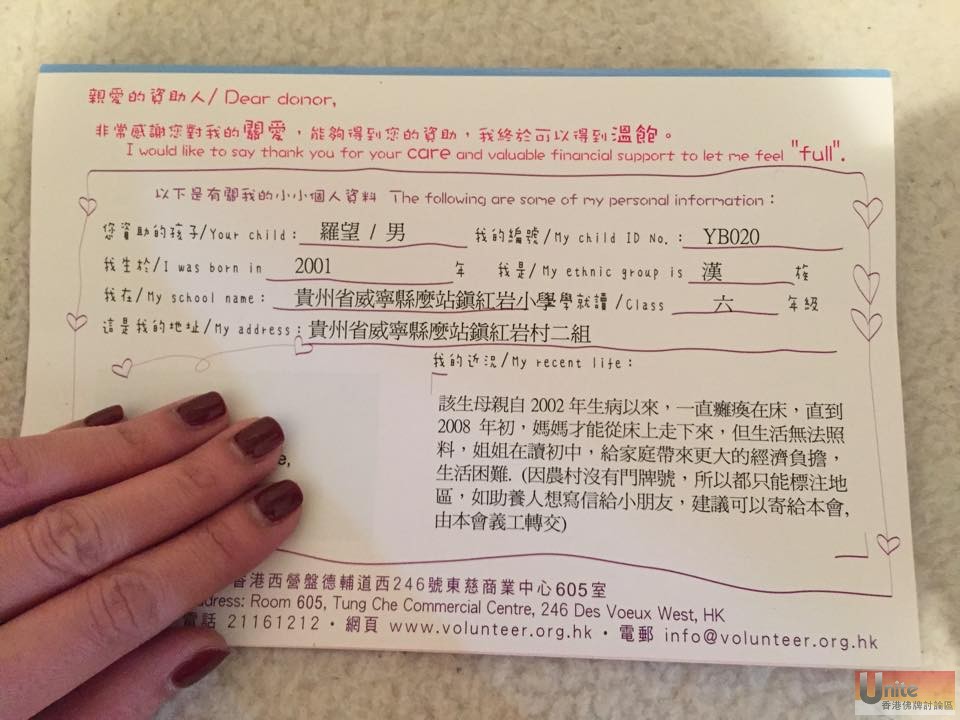 親愛的資助人/ Dear donor,
非常感謝您對我的關愛，能夠得到您的資助，我終於可以得到溫飽。
I would like to say thank you for your care and valuable financial support to let me feel "full".
以下是有關我的小小個人資料 The following are some of my personal information：
您資助的孩子/Your child： 羅望 / 男 我的編號/My child ID No.： YB020
我生於/I was born in 2001 年 我是/My ethnic group is 漢 族
我在/My school name： 貴州省威寧縣麼站鎮紅岩小學 學就讀/Class 六 年級
這是我的地址/My address： 貴州省威寧縣麼站鎮紅岩村二組
我的近況/My recent life：
該生母親自 2002 年生病以來，一直癱瘓在床，直到
2008 年初，媽媽才能從床上走下來，但生活無法照
料，姐姐在讀初中，給家庭帶來更大的經濟負擔，
生活困難. (因農村沒有門牌號，所以都只能標注地
區，如助養人想寫信給小朋友，建議可以寄給本會,
由本會義工轉交)
e,
香港西營盤德輔道西246號東慈商業中心605室
ddress: Room 605, Tung Che Commercial Centre, 246 Des Voeux West, HK
電話 21161212・網頁 www.volunteer.org.hk・電郵 info@volunteer.org.hk
Unite
香港佛牌討論區